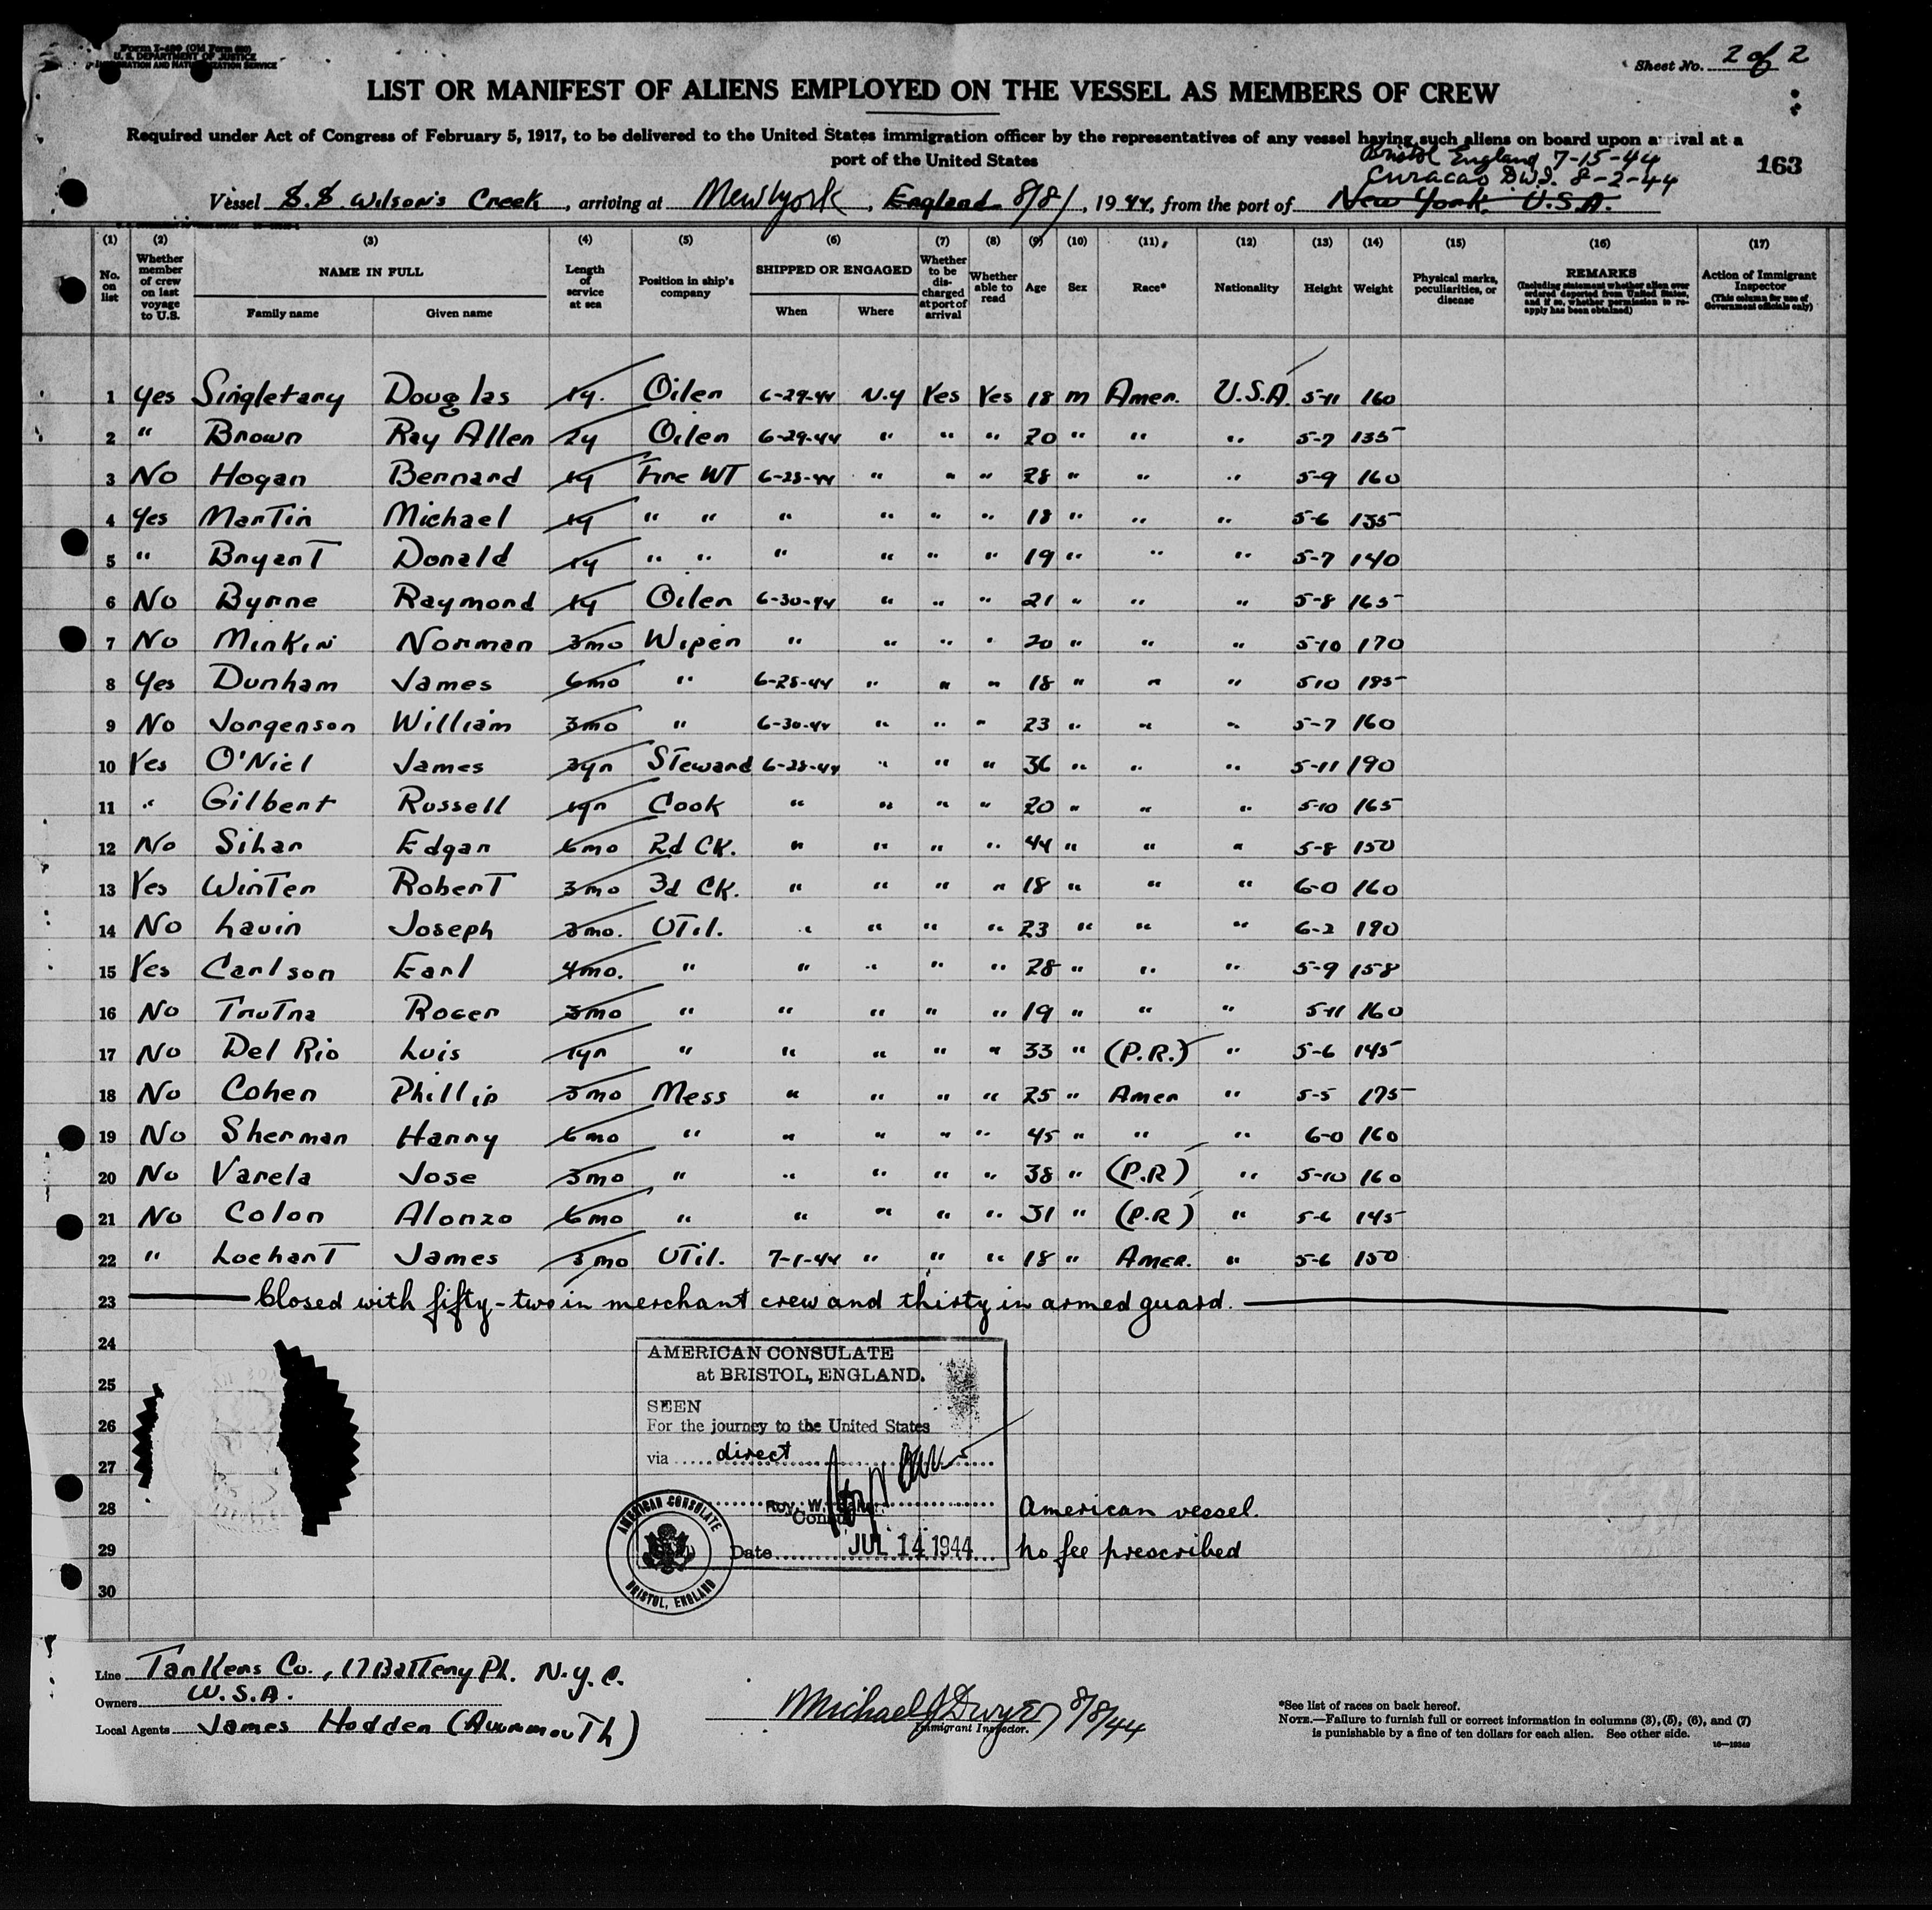 Form I-489 (Old Form 680)
U. S. DEPARTMENT OF JUSTICE
IMMIGRATION AND NATURALIZATION SERVICE
Sheet No. 2 of 2
LIST OR MANIFEST OF ALIENS EMPLOYED ON THE VESSEL AS MEMBERS OF CREW
Required under Act of Congress of February 5, 1917, to be delivered to the United States immigration officer by the representatives of any vessel having such aliens on board upon arrival at a
port of the United States
Bristol England 7-15-44
163
Curacao D.W.I. 8-2-44
Vessel S.S. Wilson's Creek, arriving at New York, England 8/8/, 1944, from the port of New York, U.S.A.
(1) (2) (3) (4) (5) (6) (7) (8) (9) (10) (11) (12) (13) (14) (15) (16) (17)
No. on list
Whether member of crew on last voyage to U.S.
NAME IN FULL
Family name Given name
Length of service at sea
Position in ship's company
SHIPPED OR ENGAGED
When Where
Whether to be discharged at port of arrival
Whether able to read
Age
Sex
Race*
Nationality
Height
Weight
Physical marks, peculiarities, or disease
REMARKS
(Including statement whether alien ever ordered deported from United States, and if so, whether permission to reapply has been obtained)
Action of Immigrant Inspector
(This column for use of Government officials only)
1 Yes Singletary Douglas 1y. Oiler 6-29-44 N.Y Yes Yes 18 m Amer. U.S.A. 5-11 160
2 " Brown Ray Allen 2y Oiler 6-29-44 " " " 20 " " " 5-7 135
3 No Hogan Bernard 1y Fire WT 6-28-44 " " " 28 " " " 5-9 160
4 Yes Martin Michael 1y " " " " " " 18 " " " 5-6 135
5 " Bryant Donald 1y " " " " " " 19 " " " 5-7 140
6 No Byrne Raymond 1y Oiler 6-30-44 " " " 21 " " " 5-8 165
7 No Minkin Norman 3mo Wiper " " " " 20 " " " 5-10 170
8 Yes Dunham James 6mo " 6-28-44 " " " 18 " " " 5-10 185
9 No Jorgenson William 3mo " 6-30-44 " " " 23 " " " 5-7 160
10 Yes O'Niel James 3yr Steward 6-28-44 " " " 36 " " " 5-11 190
11 " Gilbert Russell 1yr Cook " " " " 20 " " " 5-10 165
12 No Sihar Edgar 6mo 2d CK. " " " " 44 " " " 5-8 150
13 Yes Winter Robert 3mo 3d CK. " " " " 18 " " " 6-0 160
14 No Lavin Joseph 3mo. Util. " " " " 23 " " " 6-2 190
15 Yes Carlson Earl 4mo. " " " " " 28 " " " 5-9 158
16 No Trutna Roger 3mo " " " " " 19 " " " 5-11 160
17 No Del Rio Luis 1yr " " " " " 33 " (P.R.) " 5-6 145
18 No Cohen Phillip 3mo Mess " " " " 25 " Amer " 5-5 175
19 No Sherman Harry 6mo " " " " " 45 " " " 6-0 160
20 No Varela Jose 3mo " " " " " 38 " (P.R) " 5-10 160
21 No Colon Alonzo 6mo " " " " " 31 " (P.R) " 5-6 145
22 " Lochart James 3mo Util. 7-1-44 " " " 18 " Amer. " 5-6 150
23 Closed with fifty-two in merchant crew and thirty in armed guard.
24
AMERICAN CONSULATE
25 at BRISTOL, ENGLAND.
SEEN
26 For the journey to the United States
27 via direct
28 Roy W. Consul American vessel.
29 Date JUL 14 1944 no fee prescribed
30
AMERICAN CONSULATE BRISTOL, ENGLAND
Line Tankers Co., 17 Battery Pl. N.Y.C.
Owners W.S.A.
Local Agents James Hodder (Avonmouth)
Michael J Dwyer 8/8/44
Immigrant Inspector.
*See list of races on back hereof.
NOTE.—Failure to furnish full or correct information in columns (3), (5), (6), and (7)
is punishable by a fine of ten dollars for each alien. See other side.
16—19349